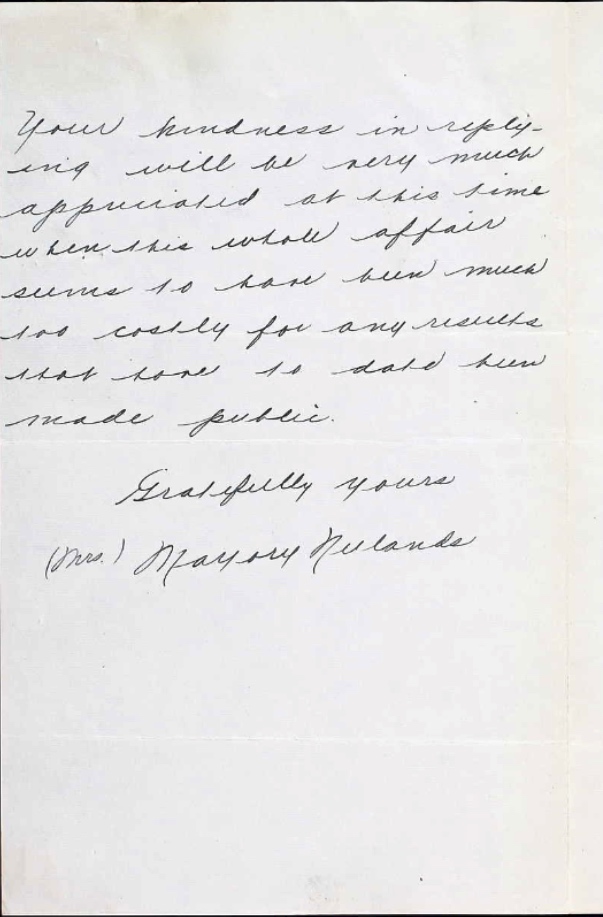 Your kindness in reply-
ing will be very much
appreciated at this time
when this whole affair
seems to have been much
too costly for any results
that have to date been
made public.
Gratefully yours
(Mrs.) Marjory Neilands